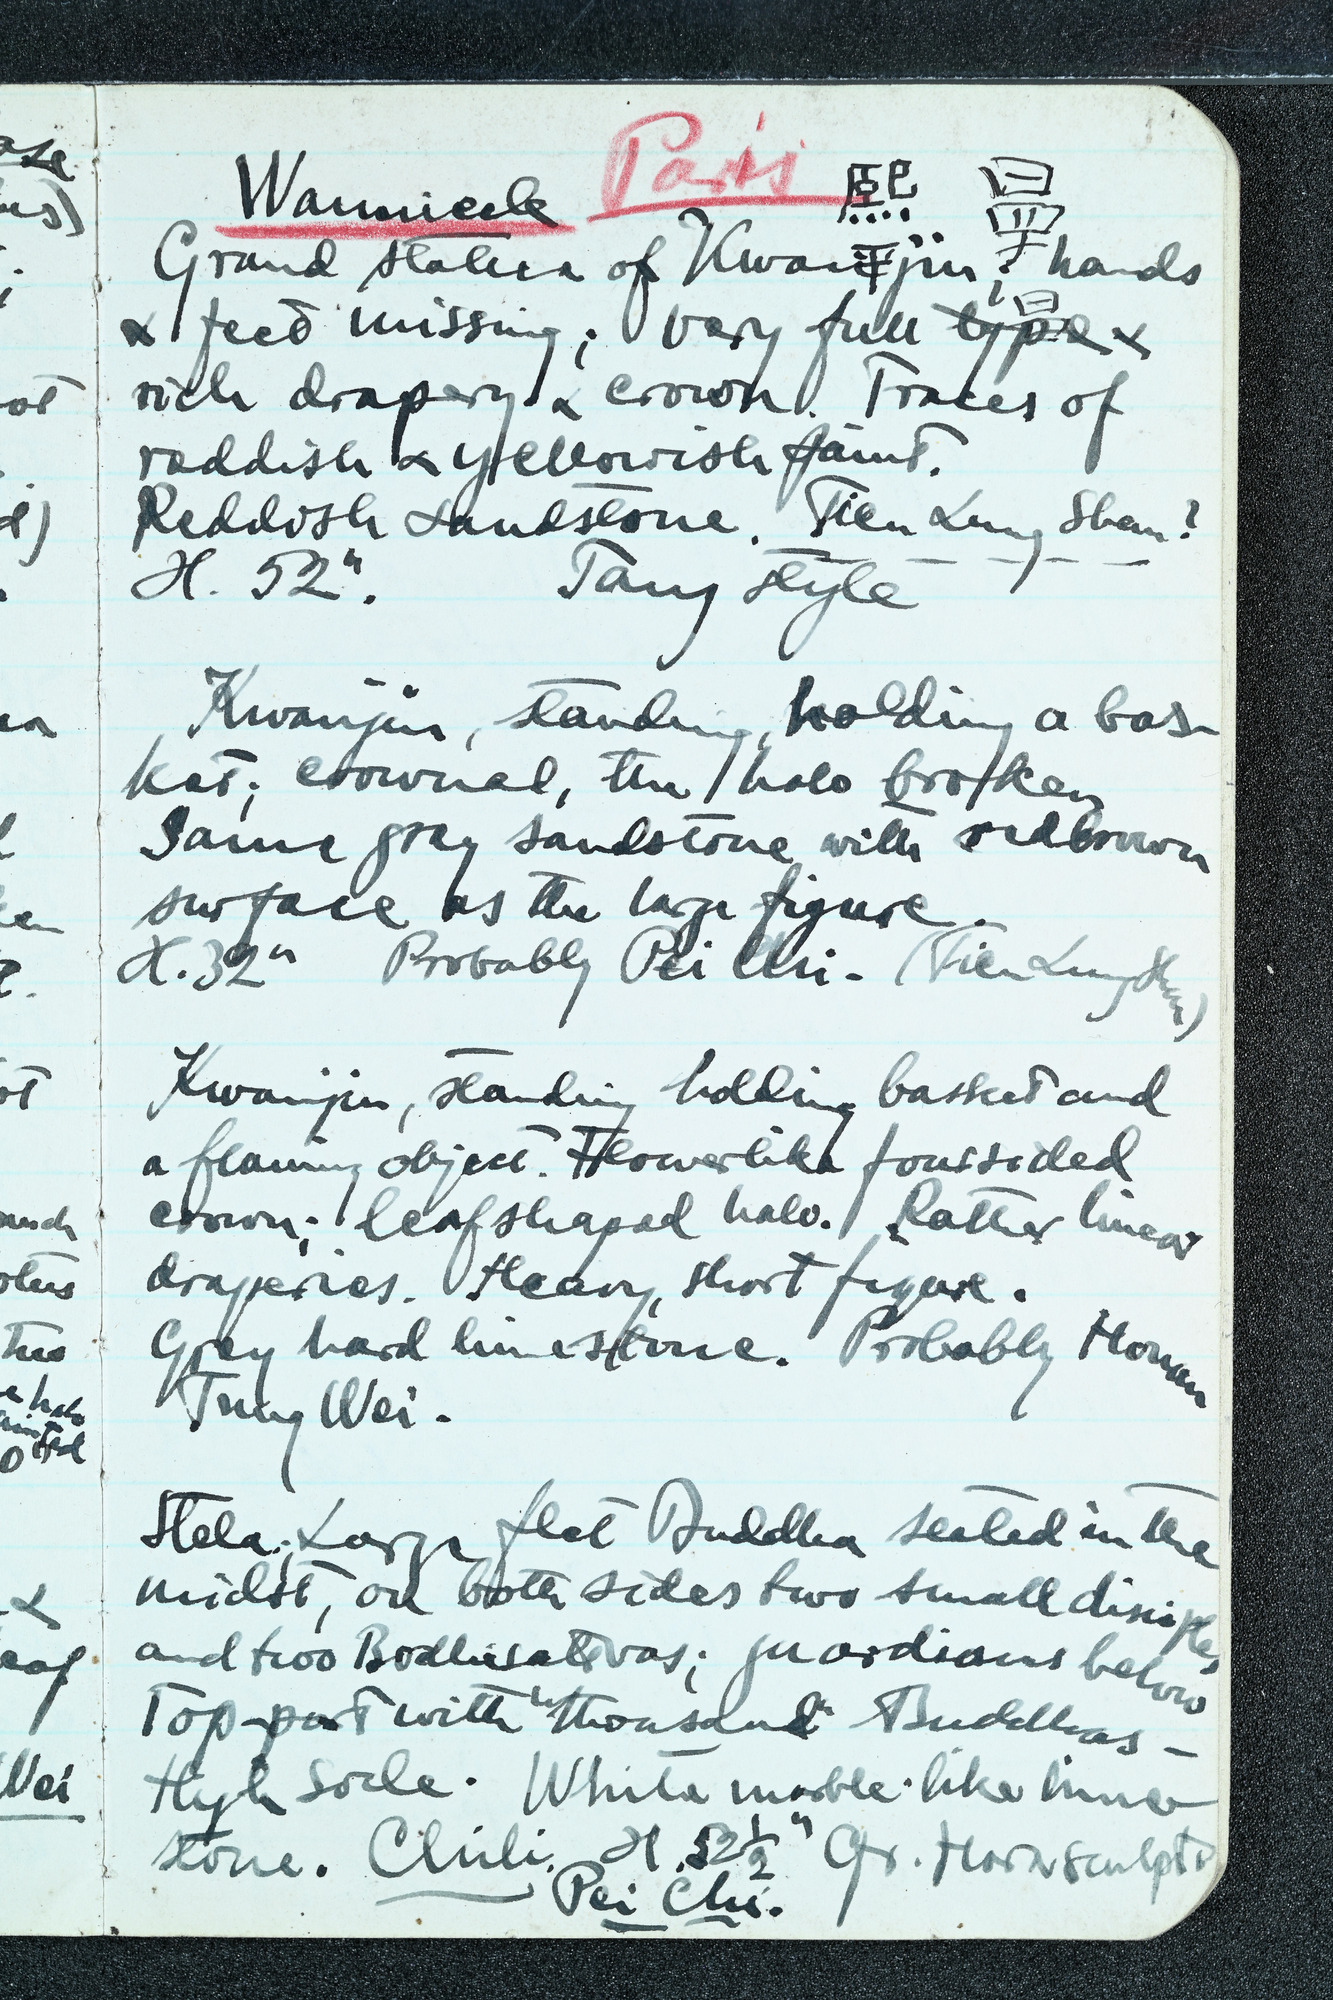 Paris
Wannieck
熙平
Grand statua of Kwanjin; hands
& feet missing; very full type &
rich drapery & crown. Traces of
raddish & yellowish paint.
Reddish sandstone. Tien Lung Shan?
H. 52". Tang style
Kwanjin, standing, holding a bas-
ket; crowned, the halo broken
Same grey sandstone with redbrown
surface as the large figure.
H. 32" Probably Pei Chi. (Tien Lung Shan)
Kwanjin, standing holding basket and
a flaming object. Flowerlike foursided
crown; leafshaped halo. Rather linear
draperies. Heavy, short figure.
Grey hard limestone. Probably Honan
Tung Wei.
Stela; Large flat Buddha seated in the
midst, on both sides two small disciples
and two Bodhisattvas; guardians below
Top part with "thousand" Buddhas -
High Socle. White marble-like lime
stone. Chili. H. 52 1/2" Gr.
Pei Chi.
ase
ot
Wei